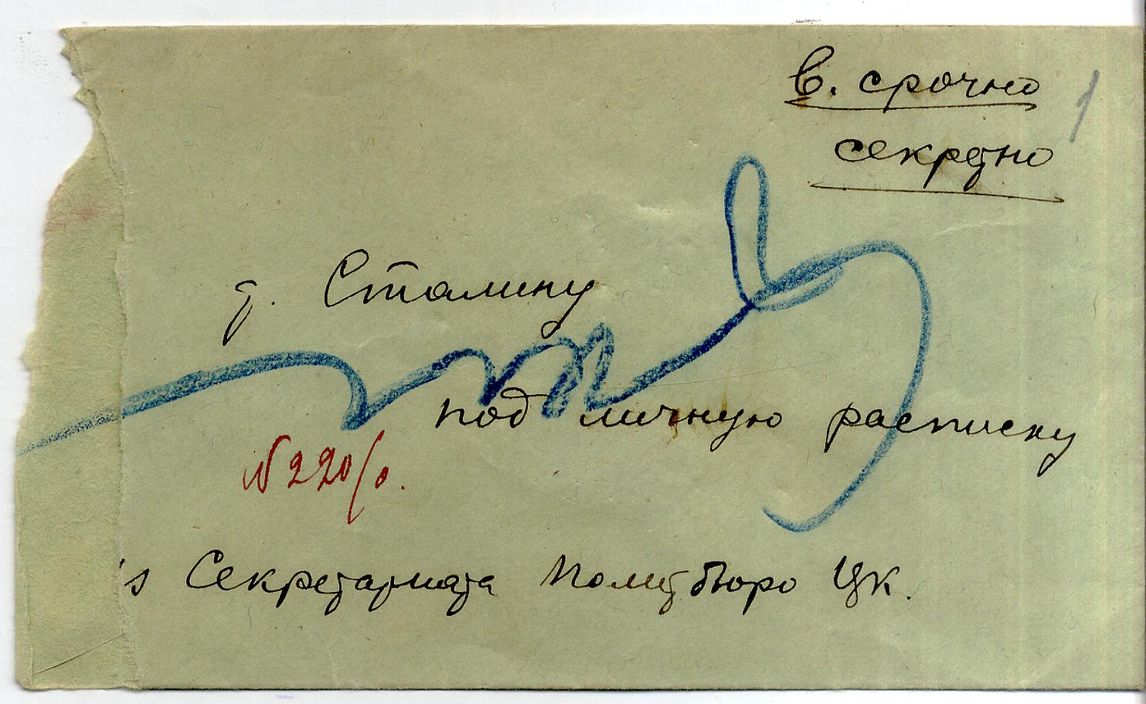 в. срочно
1
секретно
т. Сталину
под личную расписку
№ 220/о.
Секретариата Политбюро ЦК.